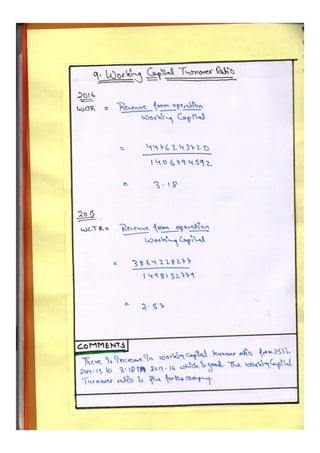 9. Working Capital Turnover Ratio
2016
WCTR = Revenue from operation
Working Capital
= 4476243720
1406794592
= 3.18
2015
WCTR = Revenue from operation
Working Capital
= 3864228277
1498132779
= 2.57
COMMENTS
There is increase in working capital turnover ratio from 2.57 in
2014-15 to 3.18 in 2015-16 which is good. The working Capital
Turnover ratio is fine for the company.